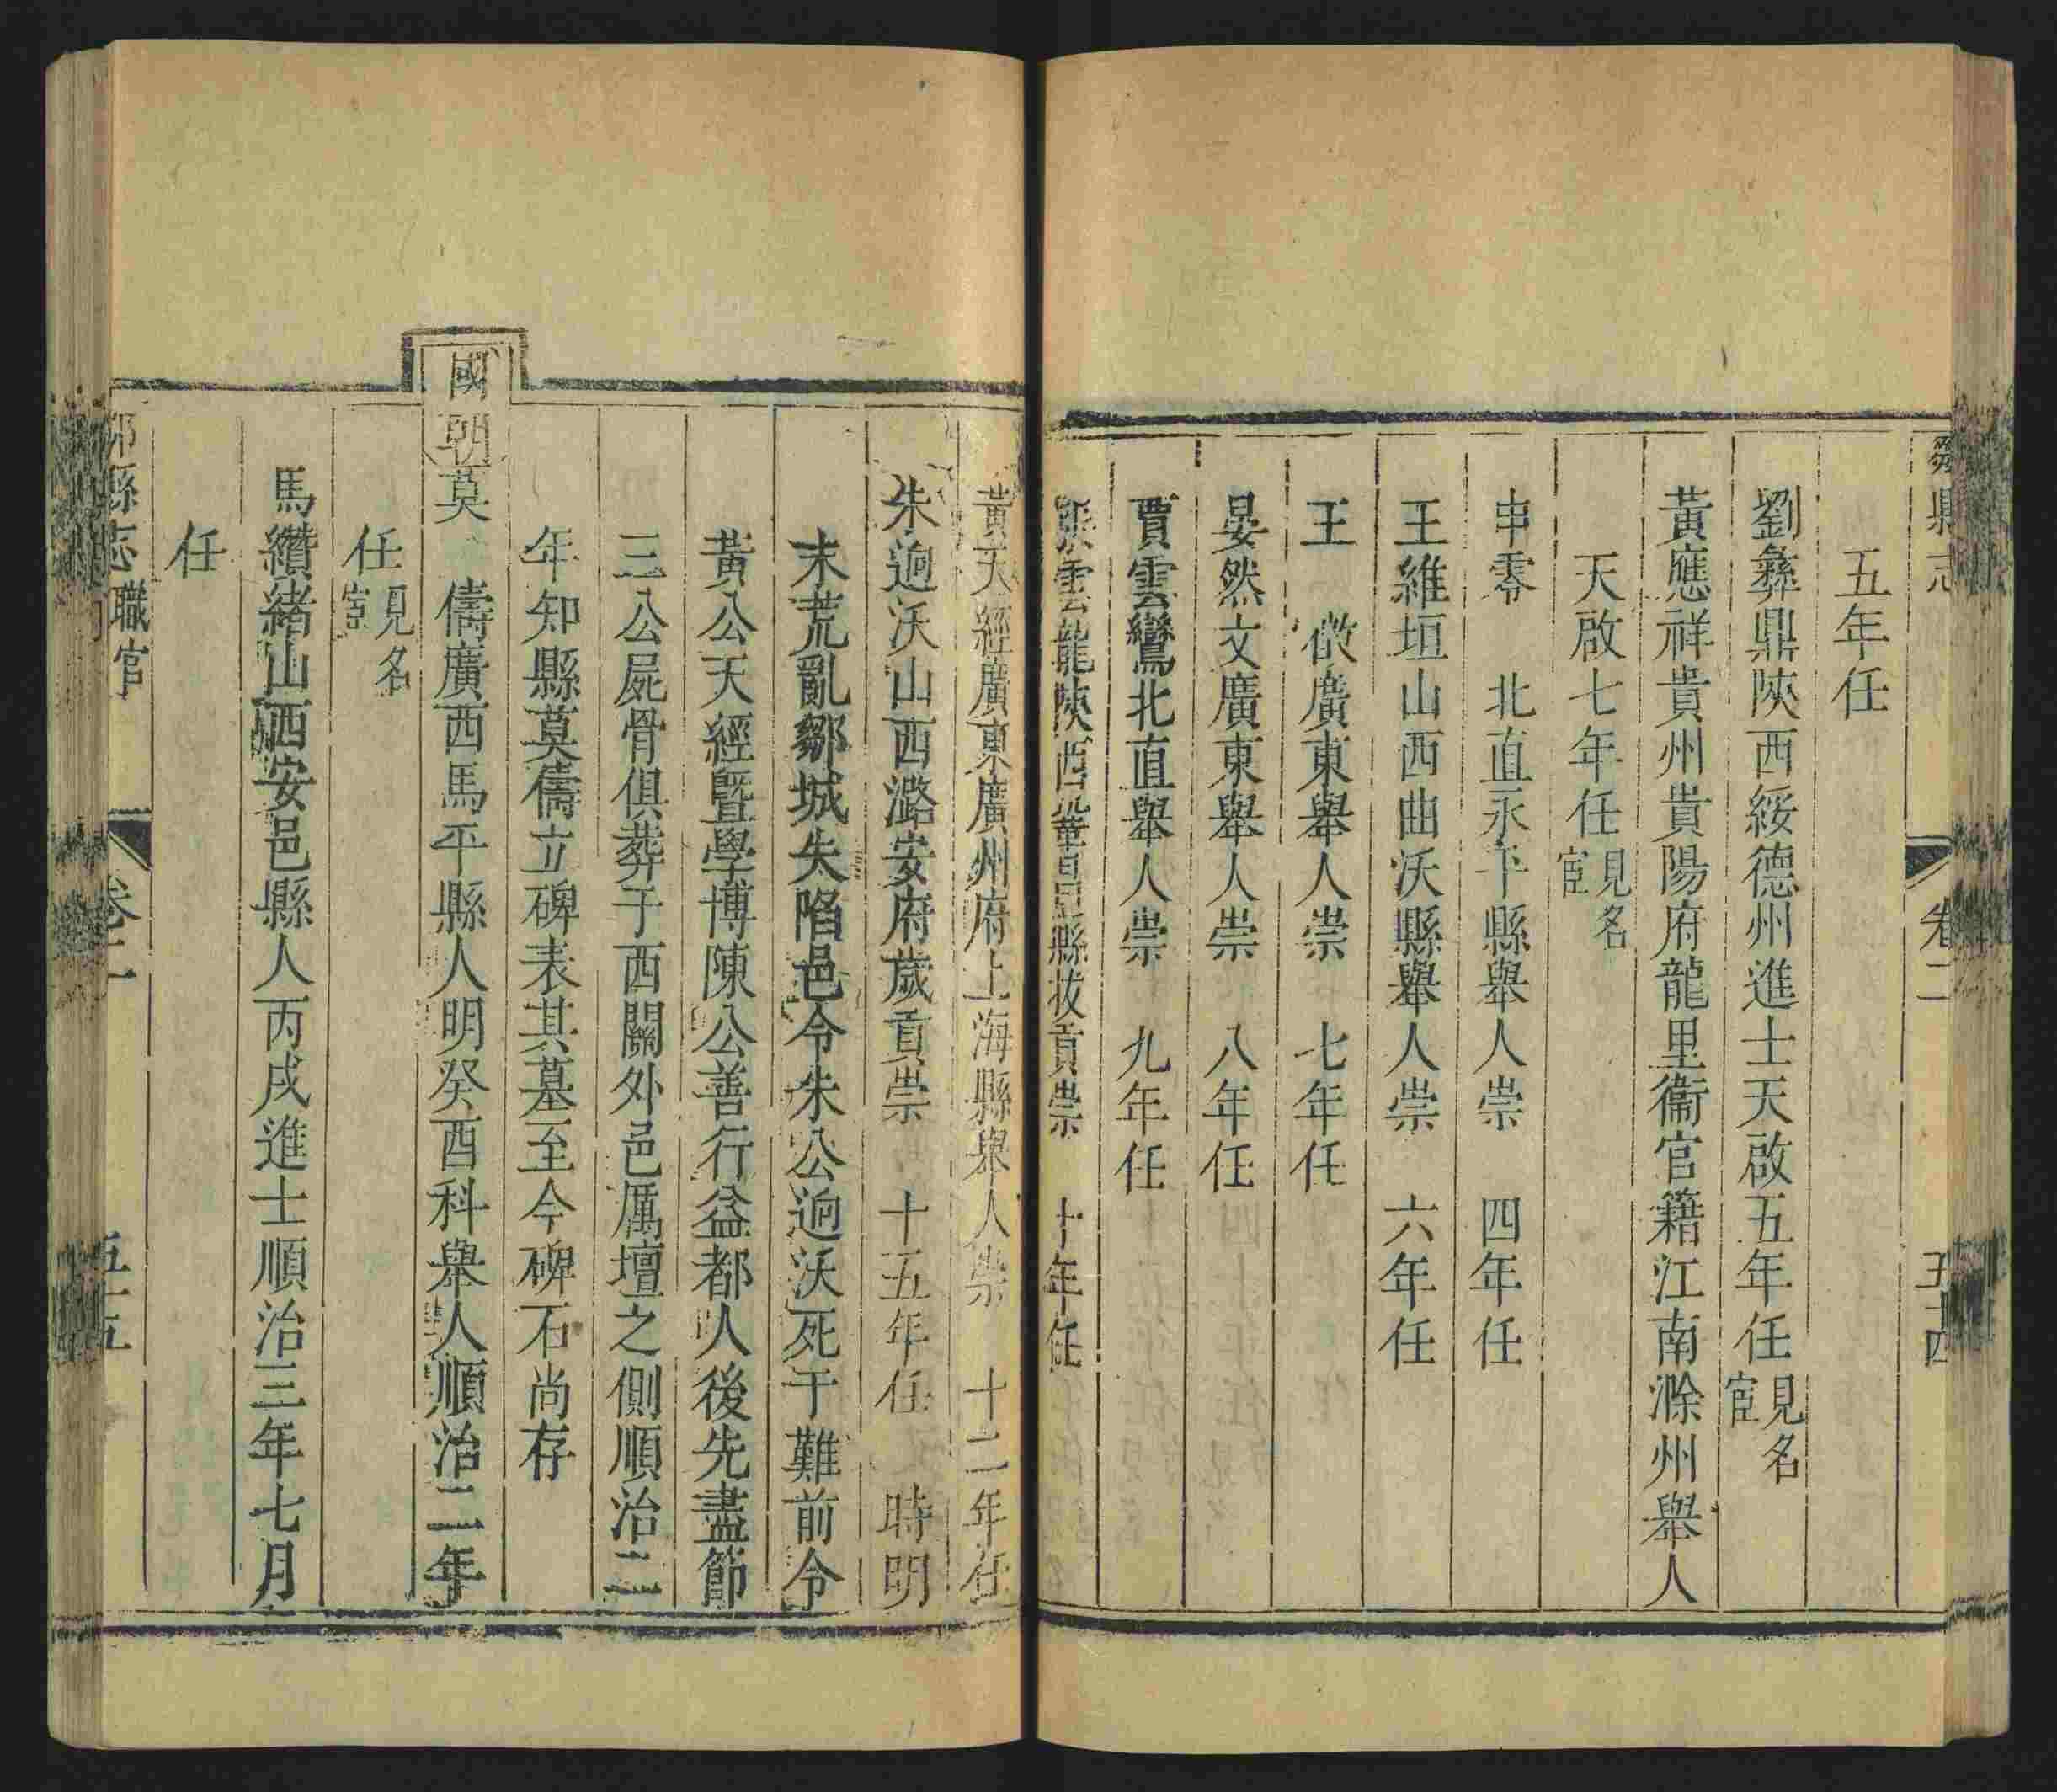 鄒縣志 卷二 五十四
五年任
劉彝鼎陝西綏德州進士天啟五年任見名宦
黃應祥貴州貴陽府龍里衞官籍江南滁州舉人
天啟七年任見名宦
申零 北直永平縣舉人崇 四年任
王維垣山西曲沃縣舉人崇 六年任
王 儆廣東舉人崇 七年任
晏然文廣東舉人崇 八年任
賈雲鸞北直舉人崇 九年任
雲龍陝西 縣拔貢崇 十年任
黃天經廣東廣州府上海縣舉人崇 十二年任
朱迥沃山西潞安府歲貢崇 十五年任 時明
末荒亂鄒城失陷邑令朱公迥沃死于難前令
黃公天經暨學博陳公善行益都人後先盡節
三公屍骨俱葬于西關外邑厲壇之側順治二
年知縣莫儔立碑表其墓至今碑石尚存
國朝莫 儔廣西馬平縣人明癸酉科舉人順治二年
任見名宦
馬纘緒山西安邑縣人丙戌進士順治三年七月
任
縣志 職官 卷二 五十五